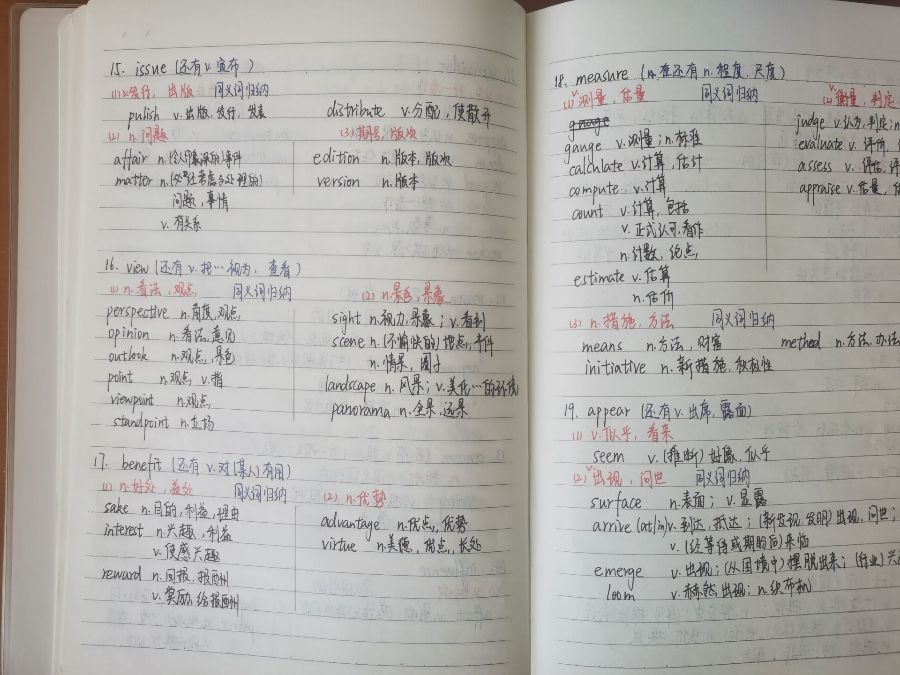 15. issue (还有 v. 宣布)
(1) v. 发行, 出版 同义词归纳
pulish v. 出版, 发行, 发表 distribute v. 分配, 使散开
(2) n. 问题 (3) 期号, 版次
affair n. (令人印象深的)事件 edition n. 版本, 版次
matter n. (必须考虑与处理的) version n. 版本
问题, 事情
v. 有关系
16. view (还有 v. 把…视为, 查看)
(1) n. 看法, 观点 同义词归纳 (2) n. 景色, 景象
perspective n. 角度, 观点 sight n. 视力, 景象; v. 看到
opinion n. 看法, 意见 scene n. (不愉快的) 地点, 事件
outlook n. 观点, 景色 n. 情景, 圈子
point n. 观点 v. 指 landscape n. 风景; v. 美化…的环境
viewpoint n. 观点 panorama n. 全景, 远景
standpoint n. 立场
17. benefit (还有 v. 对(某人)有用)
(1) n. 好处, 益处 同义词归纳 (2) n. 优势
sake n. 目的, 利益, 理由 advantage n. 优点, 优势
interest n. 兴趣, 利益 virtue n. 美德, 优点, 长处
v. 使感兴趣
reward n. 回报, 报酬
v. 奖励, 给报酬
18. measure (还有 n. 程度, 尺度)
(1) v. 测量, 估量 同义词归纳 (2) v. 衡量, 判定
judge v. 认为, 判定; n.
gauge v. 测量; n. 标准 evaluate v. 评价,
calculate v. 计算, 估计 assess v. 评估, 评
compute v. 计算 appraise v. 估量, 估
count v. 计算, 包括
v. 正式认可, 看作
n. 计数, 论点
estimate v. 估算
n. 估价
(3) n. 措施, 方法 同义词归纳
means n. 方法, 财富 method n. 方法, 办法
initiative n. 新措施, 积极性
19. appear (还有 v. 出席, 露面)
(1) v. 似乎, 看来
seem v. (推断) 好像, 似乎
(2) v. 出现, 问世 同义词归纳
surface n. 表面; v. 显露
arrive (at/in) v. 到达, 抵达; (新发现, 发明) 出现, 问世;
v. (经等待或期盼后) 来临
emerge v. 出现; (从困境中) 摆脱出来; (行业) 兴
loom v. 赫然出现; n. 织布机